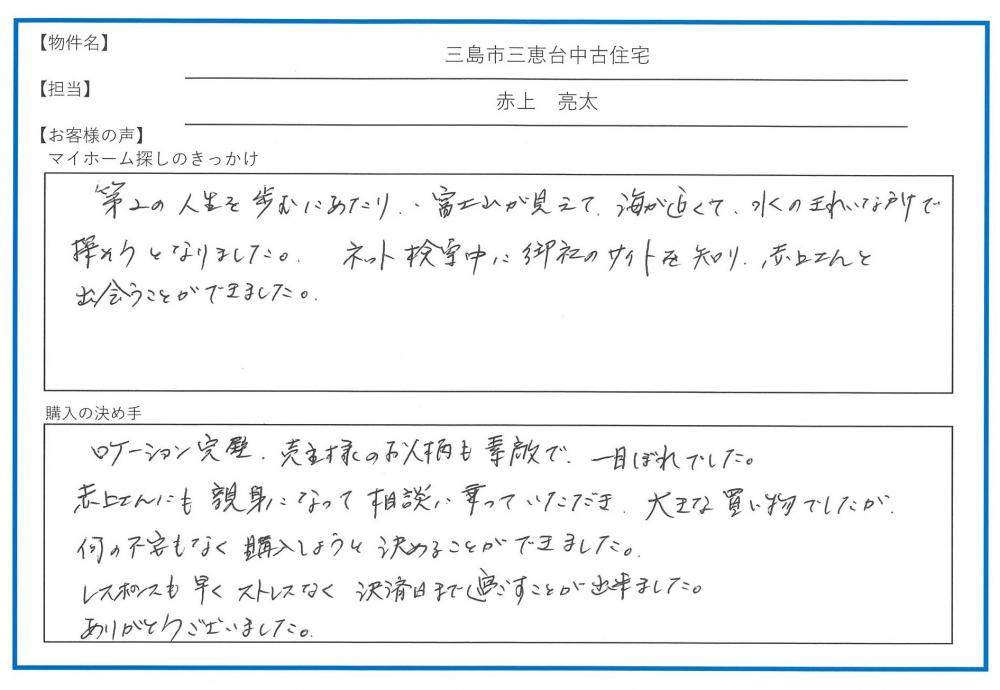 【物件名】
三島市三恵台中古住宅
【担当】
赤上　亮太
【お客様の声】
マイホーム探しのきっかけ
第2の人生を歩むにあたり、富士山が見えて、海が近くて、水のきれいな所で
探そうとなりました。 ネット検索中に御社のサイトを知り、赤上さんと
出会うことができました。
購入の決め手
ロケーション完璧、売主様のお人柄も素敵で、一目ぼれでした。
赤上さんにも親身になって相談に乗っていただき、大きな買い物でしたが、
何の不安もなく購入しようと決めることができました。
レスポンスも早くストレスなく決済日まで過ごすことが出来ました。
ありがとうございました。